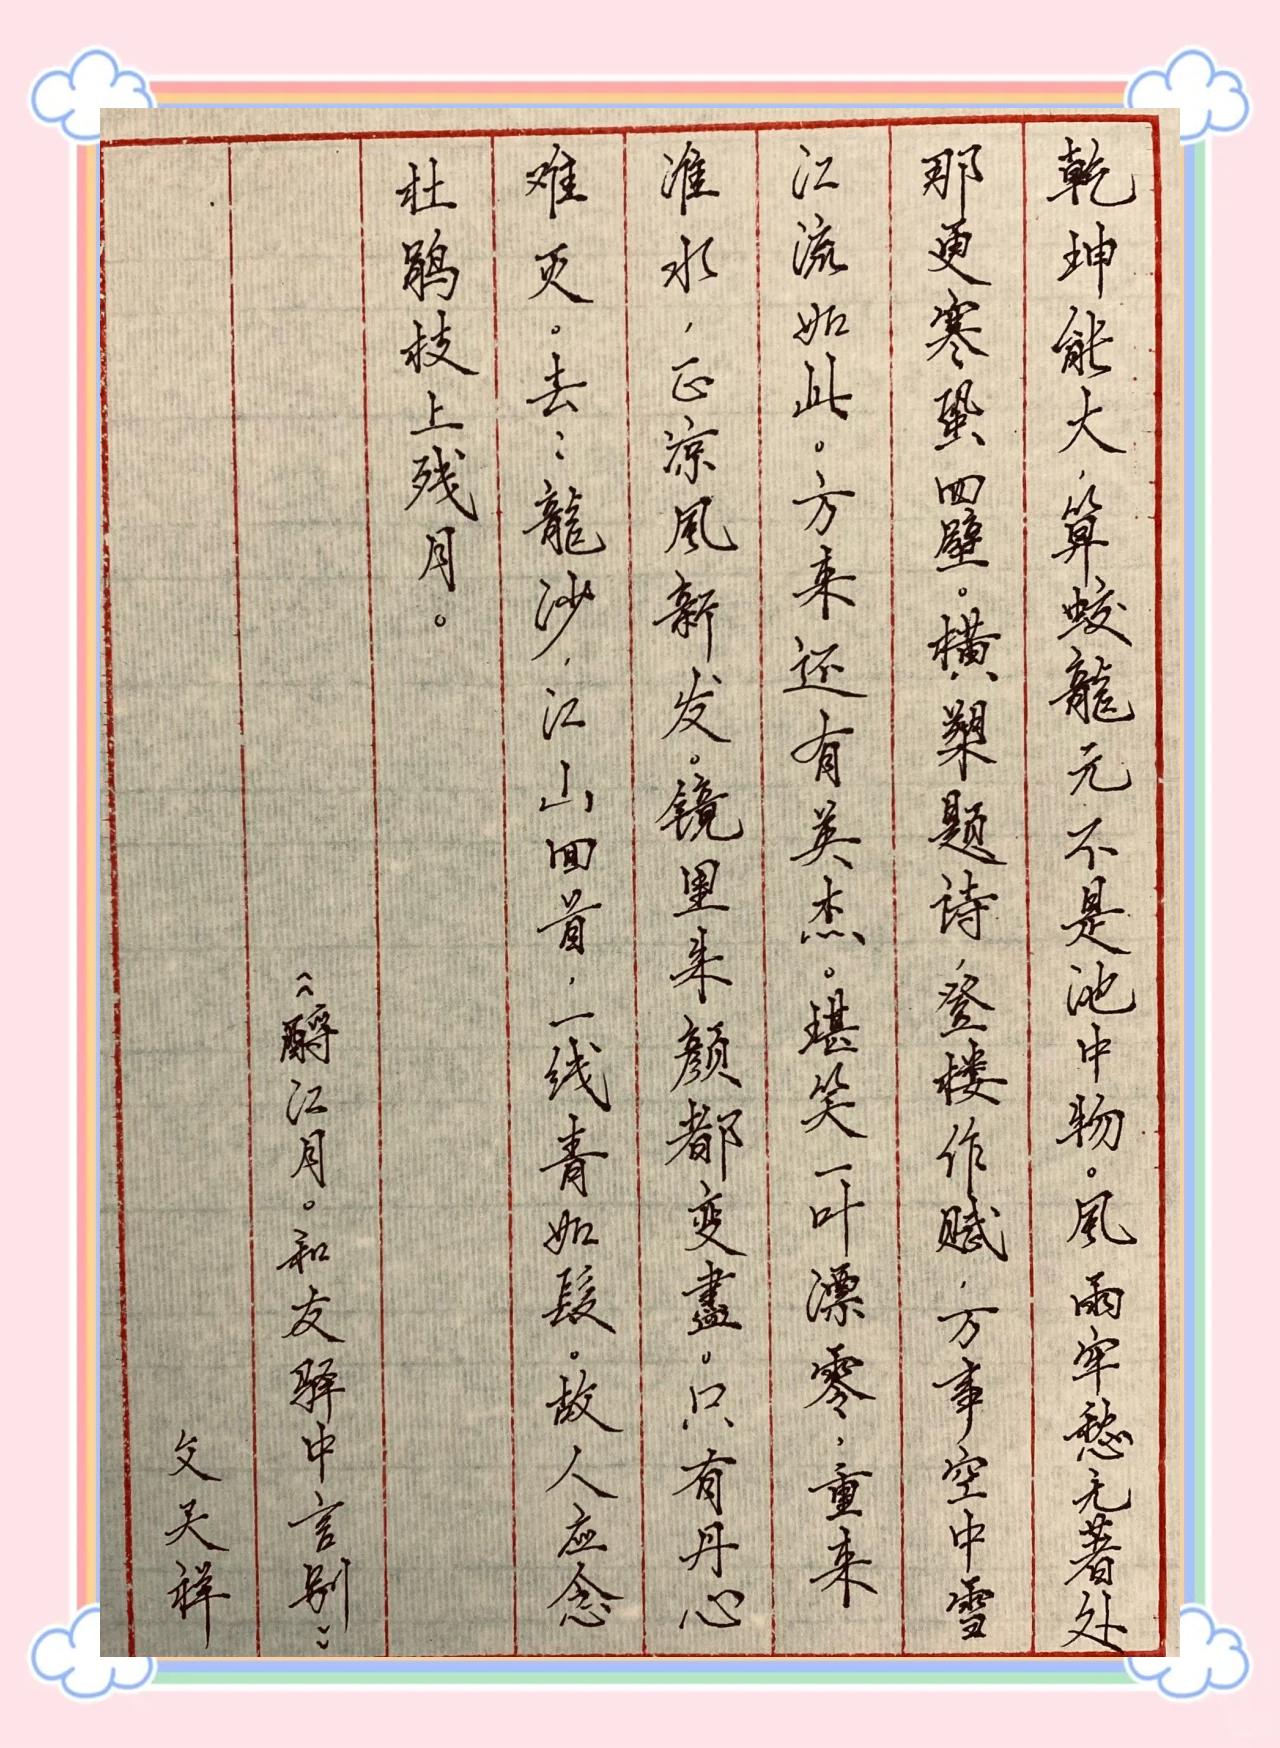 乾坤能大,算蛟龍元不是池中物。风雨牢愁无著处
那更寒蛩四壁。横槊题诗,登楼作赋,万事空中雪
江流如此。方来还有英杰。堪笑一叶漂零,重来
淮水,正凉风新发。镜里朱颜都变盡。只有丹心
难灭。去〻龍沙,江山回首,一线青如髮。故人应念
杜鹃枝上残月。
《酹江月。和友驿中言别》
文天祥